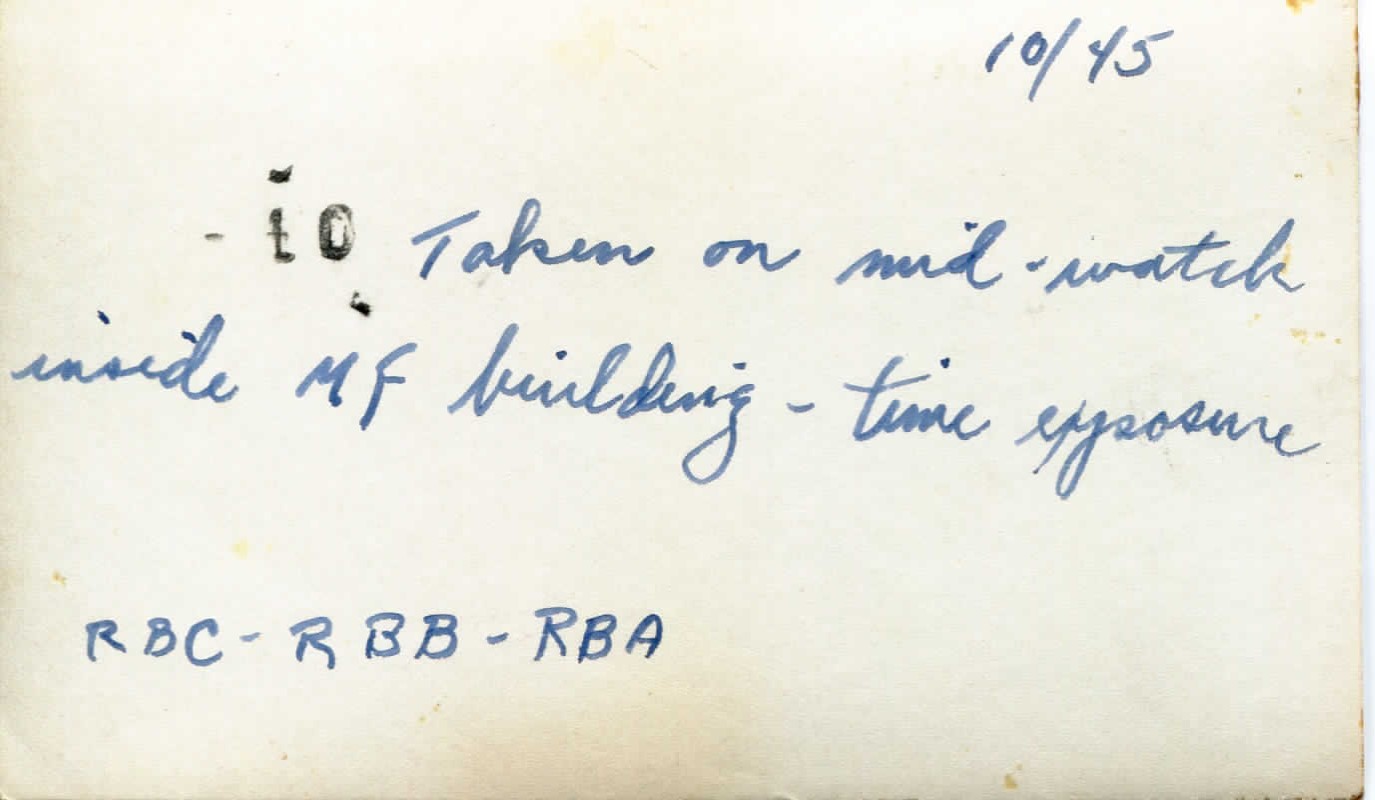 10/45
- 10 Taken on mid-watch
inside MF building - time exposure
RBC - RBB - RBA